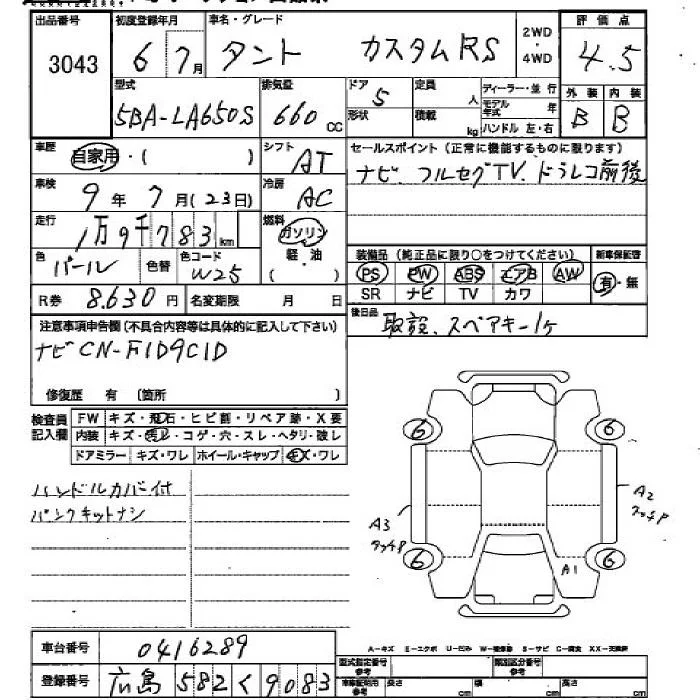 出品番号 3043
初度登録年月 6 7月
車名・グレード タント カスタムRS
2WD・4WD
評価点 4.5
型式 5BA-LA650S
排気量 660 cc
ドア 5
形状
定員 人
積載 kg
ディーラー・並行
モデル年式 年
ハンドル 左・右
外装 B
内装 B
車歴 自家用・( )
シフト AT
セールスポイント(正常に機能するものに限ります)
ナビ、フルセグTV、ドラレコ前後
車検 9年7月(23日)
冷房 AC
走行 1万9千783km
燃料 ガソリン 軽・油 ( )
色 パール 色替
色コード W25
装備品(純正品に限り○をつけてください)
PS PW ABS エアB AW
SR ナビ TV カワ
新車保証書 有・無
R券 8.630円
名変期限 月 日
後日品 取説、スペアキー1ヶ
注意事項申告欄(不具合内容等は具体的に記入して下さい)
ナビCN-F1D9C1D
修復歴 有 〔箇所 〕
検査員記入欄
FW キズ・飛石・ヒビ割・リペア跡・X要
内装 キズ・汚レ・コゲ・穴・スレ・ヘタリ・破レ
ドアミラー キズ・ワレ ホイール・キャップ キズ・ワレ
ハンドルカバー付
パンクキットナシ
6 6
A2
タッチP
A3
タッチP
6 6
A1
車台番号 0416289
登録番号 広島 582 く 9083
A-キズ E-エクボ U-凹み W-補修跡 S-サビ C-腐食 XX-交換済
型式指定番号 参考
類別区分番号 参考
長さ cm 幅 cm 高さ cm